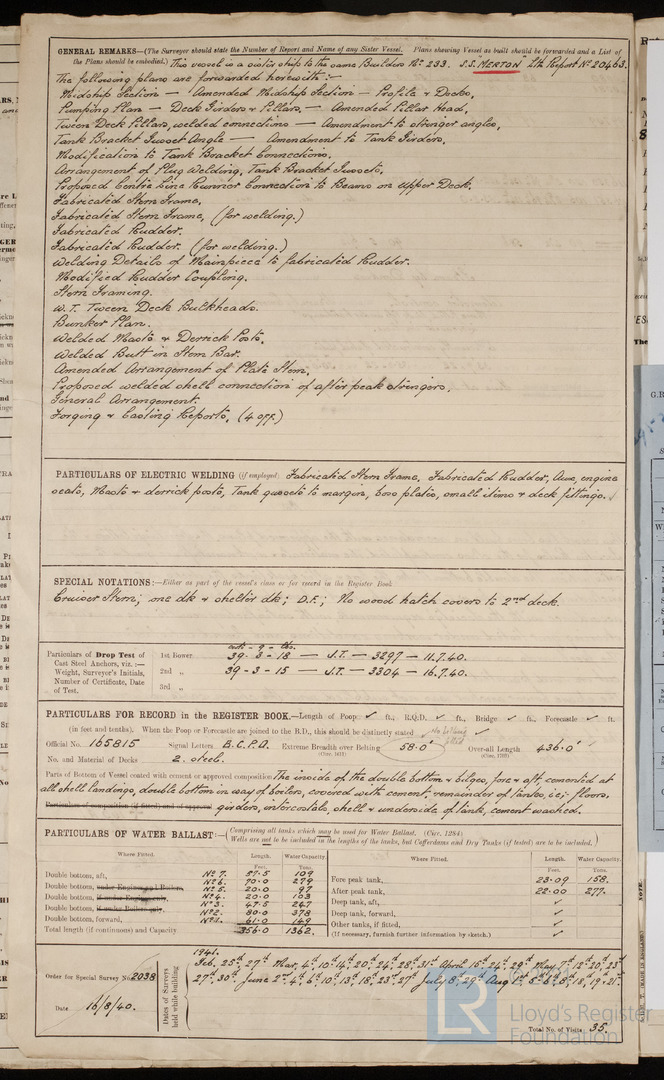 GENERAL REMARKS—(The Surveyor should state the Number of Report and Name of any Sister Vessel. Plans showing Vessel as built should be forwarded and a List of
the Plans should be embodied.) This vessel is a sister ship to the same Builders No 233. S.S. "MERTON" Lth. Report No 20463.
The following plans are forwarded herewith:-
Midship Section — Amended Midship Section — Profile & Decks,
Pumping Plan — Deck Girders & Pillars, — Amended Pillar Head,
Tween Deck Pillars, welded connections — Amendment to stringer angles,
Tank Bracket Gusset Angle — Amendment to Tank Girders,
Modification to Tank Bracket Connections,
Arrangement of Plug Welding, Tank Bracket Gussets,
Proposed Centre Line Runner Connection to Beams on Upper Deck,
Fabricated Stern Frame,
Fabricated Stern Frame, (for welding.)
Fabricated Rudder.
Fabricated Rudder. (for welding.)
Welding Details of Mainpiece to fabricated Rudder.
Modified Rudder Coupling.
Stern Framing.
W.T. Tween Deck Bulkheads.
Bunker Plan.
Welded Masts & Derrick Posts,
Welded Butt in Stem Bar.
Amended Arrangement of Plate Stem,
Proposed welded shell connection of after peak stringers,
General Arrangement.
Forging & Casting Reports, (4 off.)
PARTICULARS OF ELECTRIC WELDING (if employed) Fabricated Stern Frame, Fabricated Rudder, Aux. engine
seats, Masts & derrick posts, Tank gussets to margin, boss plates, small items & deck fittings.
SPECIAL NOTATIONS:—Either as part of the vessel's class or for record in the Register Book
Cruiser Stern; one dk & shelter dk; D.F.; No wood hatch covers to 2nd deck.
Particulars of Drop Test of
Cast Steel Anchors, viz.:—
Weight, Surveyor's Initials,
Number of Certificate, Date
of Test.
cwts - q - lbs.
1st Bower 39-3-18 — J.T. — 3297 — 11.7.40.
2nd „ 39-3-15 — J.T. — 3304 — 16.7.40.
3rd „
PARTICULARS FOR RECORD in the REGISTER BOOK.—Length of Poop ✓ ft., R.Q.D. ✓ ft., Bridge ✓ ft., Forecastle ✓ ft.
(in feet and tenths). When the Poop or Forecastle are joined to the B.D., this should be distinctly stated ✓
No belting fitted
Official No. 165815 Signal Letters B.C.P.Q. Extreme Breadth over Belting 58.0' Over-all Length 436.0'
No. and Material of Decks 2. steel.
Parts of Bottom of Vessel coated with cement or approved composition The inside of the double bottom & bilges, fore & aft, cemented at
all shell landings, double bottom in way of boilers, covered with cement, remainder of tanks, i.e; floors,
Particulars of composition (if fitted) and of approval girders, intercostals, shell & underside of tank, cement washed.
PARTICULARS OF WATER BALLAST:—(Comprising all tanks which may be used for Water Ballast. (Circ. 1284)
Wells are not to be included in the lengths of the tanks, but Cofferdams and Dry Tanks (if tested) are to be included.)
Where Fitted. Length. Water Capacity. Where Fitted. Length. Water Capacity.
Feet. Tons. Feet. Tons.
Double bottom, aft, No 7. 57.5 109
No 6. 70.0 279
Double bottom, under Engines and Boilers, No 5. 20.0 97
Double bottom, if under Engines only, No 4. 20.0 103
Double bottom, if under Boilers only, No 3. 47.5 247
No 2. 80.0 378
Double bottom, forward, No 1. 61.0 149
Total length (if continuous) and Capacity 356.0 1362.
Fore peak tank, 23.09 158.
After peak tank, 22.00 277.
Deep tank, aft, ✓
Deep tank, forward, ✓
Other tanks, if fitted, ✓
(If necessary, furnish further information by sketch.) ✓
Order for Special Survey No. 2038
Date 16/8/40.
Dates of Surveys
held while building
1941.
Feb. 25th, 27th Mar. 4, 10th 14th 20th 24th 28th 31st April 15th 24th 29th May 7th 12th 20th 23rd
27th, 30th June 2nd 4th 6th 10th 13th 18th 23rd 27th July 8th 29th Aug 1st
Total No. of Visits 35.
LR
Lloyd's Register
Foundation